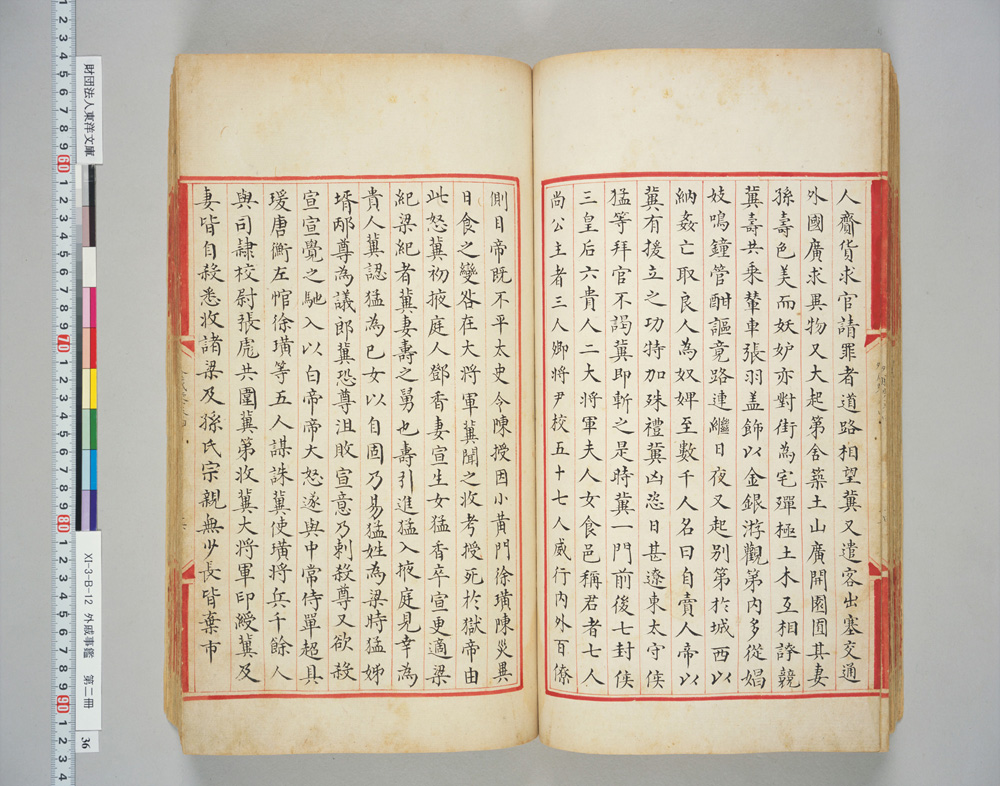 人齎貨求官請罪者道路相望冀又遣客出塞交通
外國廣求異物又大起第舍築土山廣開園囿其妻
孫壽色美而妖妒亦對街為宅殫極土木互相誇競
冀壽共乘輦車張羽盖飾以金銀游觀第内多從娼
妓鳴鐘管酣謳竟路連繼日夜又起別第於城西以
納姦亡取良人為奴婢至數千人名曰自賣人帝以
冀有援立之功特加殊禮冀凶恣日甚遼東太守侯
猛等拜官不謁冀即斬之是時冀一門前後七封侯
三皇后六貴人二大將軍夫人女食邑稱君者七人
尚公主者三人卿將尹校五十七人威行内外百僚
側目帝既不平太史令陳授因小黄門徐璜陳災異
日食之變咎在大將軍冀聞之收考授死於獄帝由
此怒冀初掖庭人鄧香妻宣生女猛香卒宣更適梁
紀梁紀者冀妻壽之舅也壽引進猛入掖庭見幸為
貴人冀認猛為己女以自固乃易猛姓為梁時猛姊
壻邴尊為議郎冀恐尊沮敗宣意乃刺殺尊又欲殺
宣宣覺之馳入以白帝帝大怒遂與中常侍單超具
瑗唐衡左悺徐璜等五人謀誅冀使璜將兵千餘人
與司隸校尉張彪共圍冀第收冀大將軍印綬冀及
妻皆自殺悉收諸梁及孫氏宗親無少長皆棄市
財団法人東洋文庫
XI-3-B-12 外戚事鑑 第二冊
36